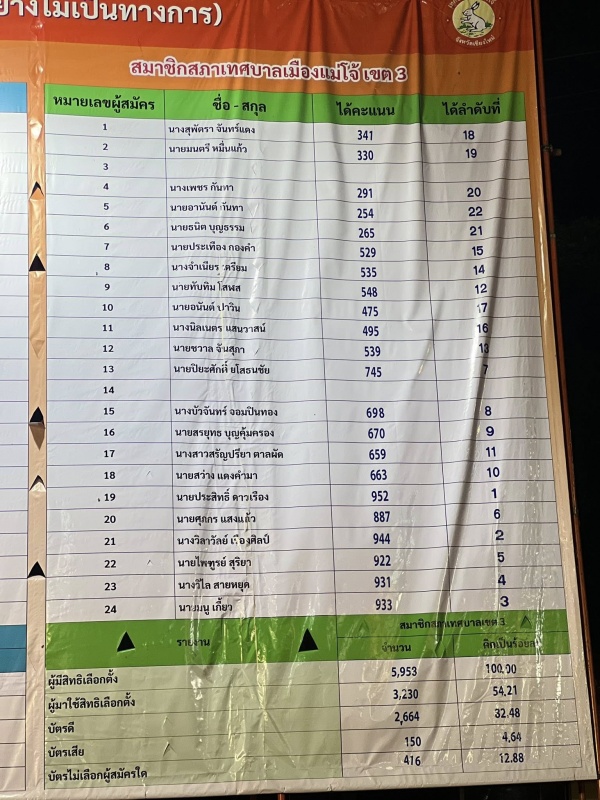 อย่างไม่เป็นทางการ)
จังหวัดเชียงใหม่
สมาชิกสภาเทศบาลเมืองแม่โจ้ เขต 3
หมายเลขผู้สมัคร ชื่อ - สกุล ได้คะแนน ได้ลำดับที่
1 นางสุพัตรา จันทร์แดง 341 18
2 นายมนตรี หมื่นแก้ว 330 19
3
4 นางเพชร กันทา 291 20
5 นายอานันต์ กันทา 254 22
6 นายธนิต บุญธรรม 265 21
7 นายประเทือง กองคำ 529 15
8 นางจำเนียร เตรียม 535 14
9 นายทับทิม โสฬส 548 12
10 นายอนันต์ ปาวิน 475 17
11 นางนิลเนตร แสนวาสน์ 495 16
12 นายชวาล จันสุภา 539 13
13 นายปิยะศักดิ์ ยโสธนชัย 745 7
14
15 นางบัวจันทร์ จอมปินทอง 698 8
16 นายสรยุทธ บุญคุ้มครอง 670 9
17 นางสาวสรัญปรียา ตาลผัด 659 11
18 นายสว่าง แดงคำมา 663 10
19 นายประสิทธิ์ ดาวเรือง 952 1
20 นายศุภกร แสงแก้ว 887 6
21 นางวิลาวัลย์ เรืองศิลป์ 944 2
22 นายไพฑูรย์ สุริยา 922 5
23 นางวิไล สายหยุด 931 4
24 นายมนู เกี๋ยว 933 3
รายงาน สมาชิกสภาเทศบาลเขต 3
จำนวน คิดเป็นร้อยละ
ผู้มีสิทธิเลือกตั้ง 5,953 100.00
ผู้มาใช้สิทธิเลือกตั้ง 3,230 54.21
บัตรดี 2,664 32.48
บัตรเสีย 150 4.64
บัตรไม่เลือกผู้สมัครใด 416 12.88